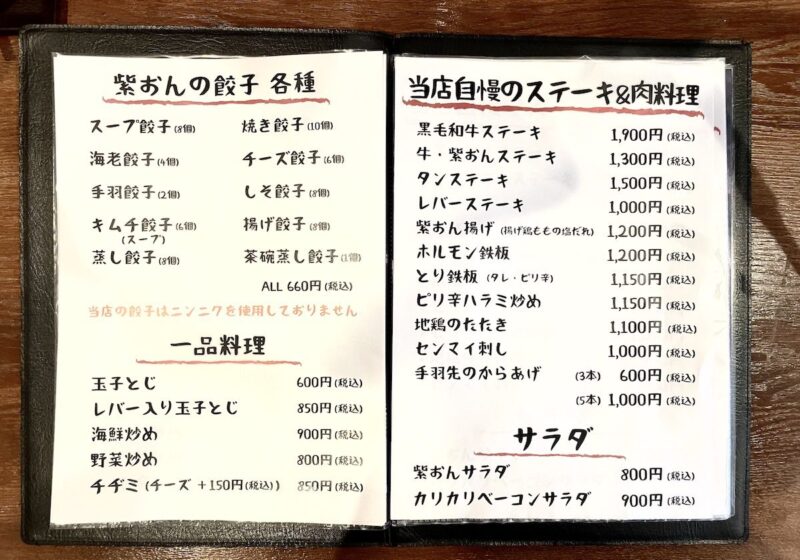 紫おんの餃子 各種
スープ餃子(8個) 焼き餃子(10個)
海老餃子(4個) チーズ餃子(6個)
手羽餃子(2個) しそ餃子(8個)
キムチ餃子(6個) 揚げ餃子(8個)
(スープ)
蒸し餃子(8個) 茶碗蒸し餃子(1個)
ALL 660円(税込)
当店の餃子はニンニクを使用しておりません
一品料理
玉子とじ 600円(税込)
レバー入り玉子とじ 850円(税込)
海鮮炒め 900円(税込)
野菜炒め 800円(税込)
チヂミ(チーズ +150円(税込)) 850円(税込)
当店自慢のステーキ&肉料理
黒毛和牛ステーキ 1,900円(税込)
牛・紫おんステーキ 1,300円(税込)
タンステーキ 1,500円(税込)
レバーステーキ 1,000円(税込)
紫おん揚げ(揚げ鶏ももの塩だれ) 1,200円(税込)
ホルモン鉄板 1,200円(税込)
とり鉄板(タレ・ピリ辛) 1,150円(税込)
ピリ辛ハラミ炒め 1,150円(税込)
地鶏のたたき 1,100円(税込)
センマイ刺し 1,000円(税込)
手羽先のからあげ (3本) 600円(税込)
(5本) 1,000円(税込)
サラダ
紫おんサラダ 800円(税込)
カリカリベーコンサラダ 900円(税込)